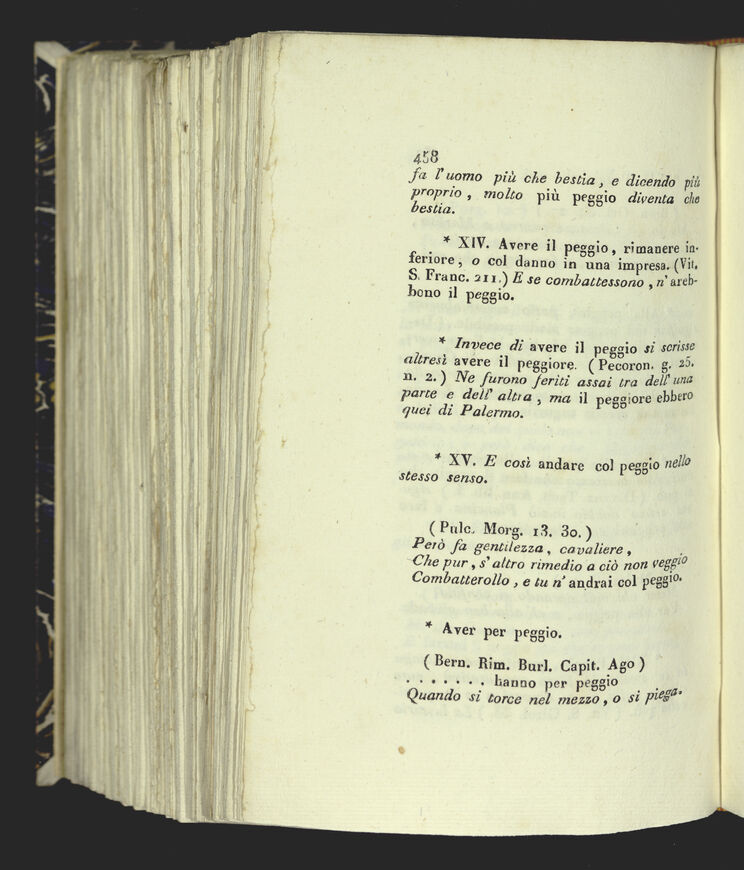 458
fa l'uomo più che bestia, e dicendo più
proprio, molto più peggio diventa che
bestia.
* XIV. Avere il peggio, rimanere in-
feriore, o col danno in una impresa. (Vit.
S. Franc. 211.) E se combattessono, n' areb-
bono il peggio.
* Invece di avere il peggio si scrisse
altresì avere il peggiore. (Pecoron. g. 25.
n. 2.) Ne furono feriti assai tra dell' una
parte e dell' altra, ma il peggiore ebbero
quei di Palermo.
* XV. E così andare col peggio nello
stesso senso.
(Pulc. Morg. 13. 30.)
Però fa gentilezza, cavaliere,
Che pur, s' altro rimedio a ciò non veggio
Combatterollo, e tu n' andrai col peggio.
* Aver per peggio.
(Bern. Rim. Burl. Capit. Ago)
. . . . . . . hanno per peggio
Quando si torce nel mezzo, o si piega.